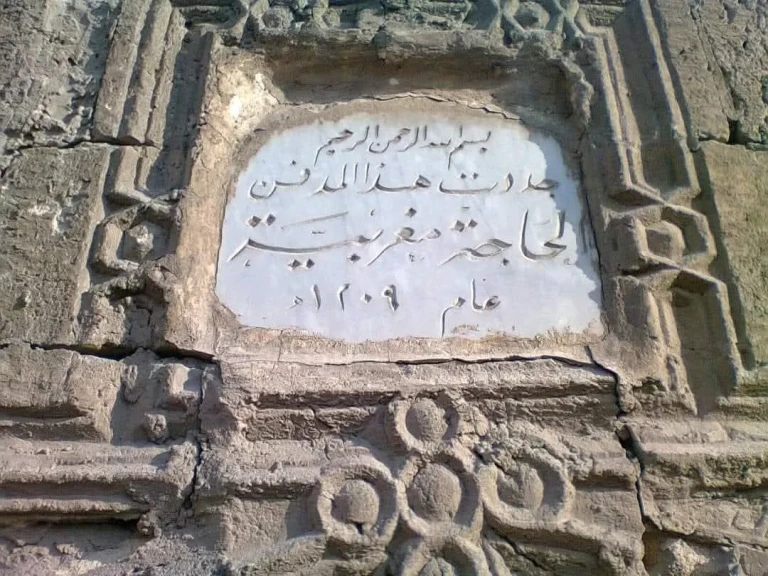 بسم الله الرحمن الرحيم
جددت هذا المدفن
الحاجة مغربية
عام ١٢٠٩ء